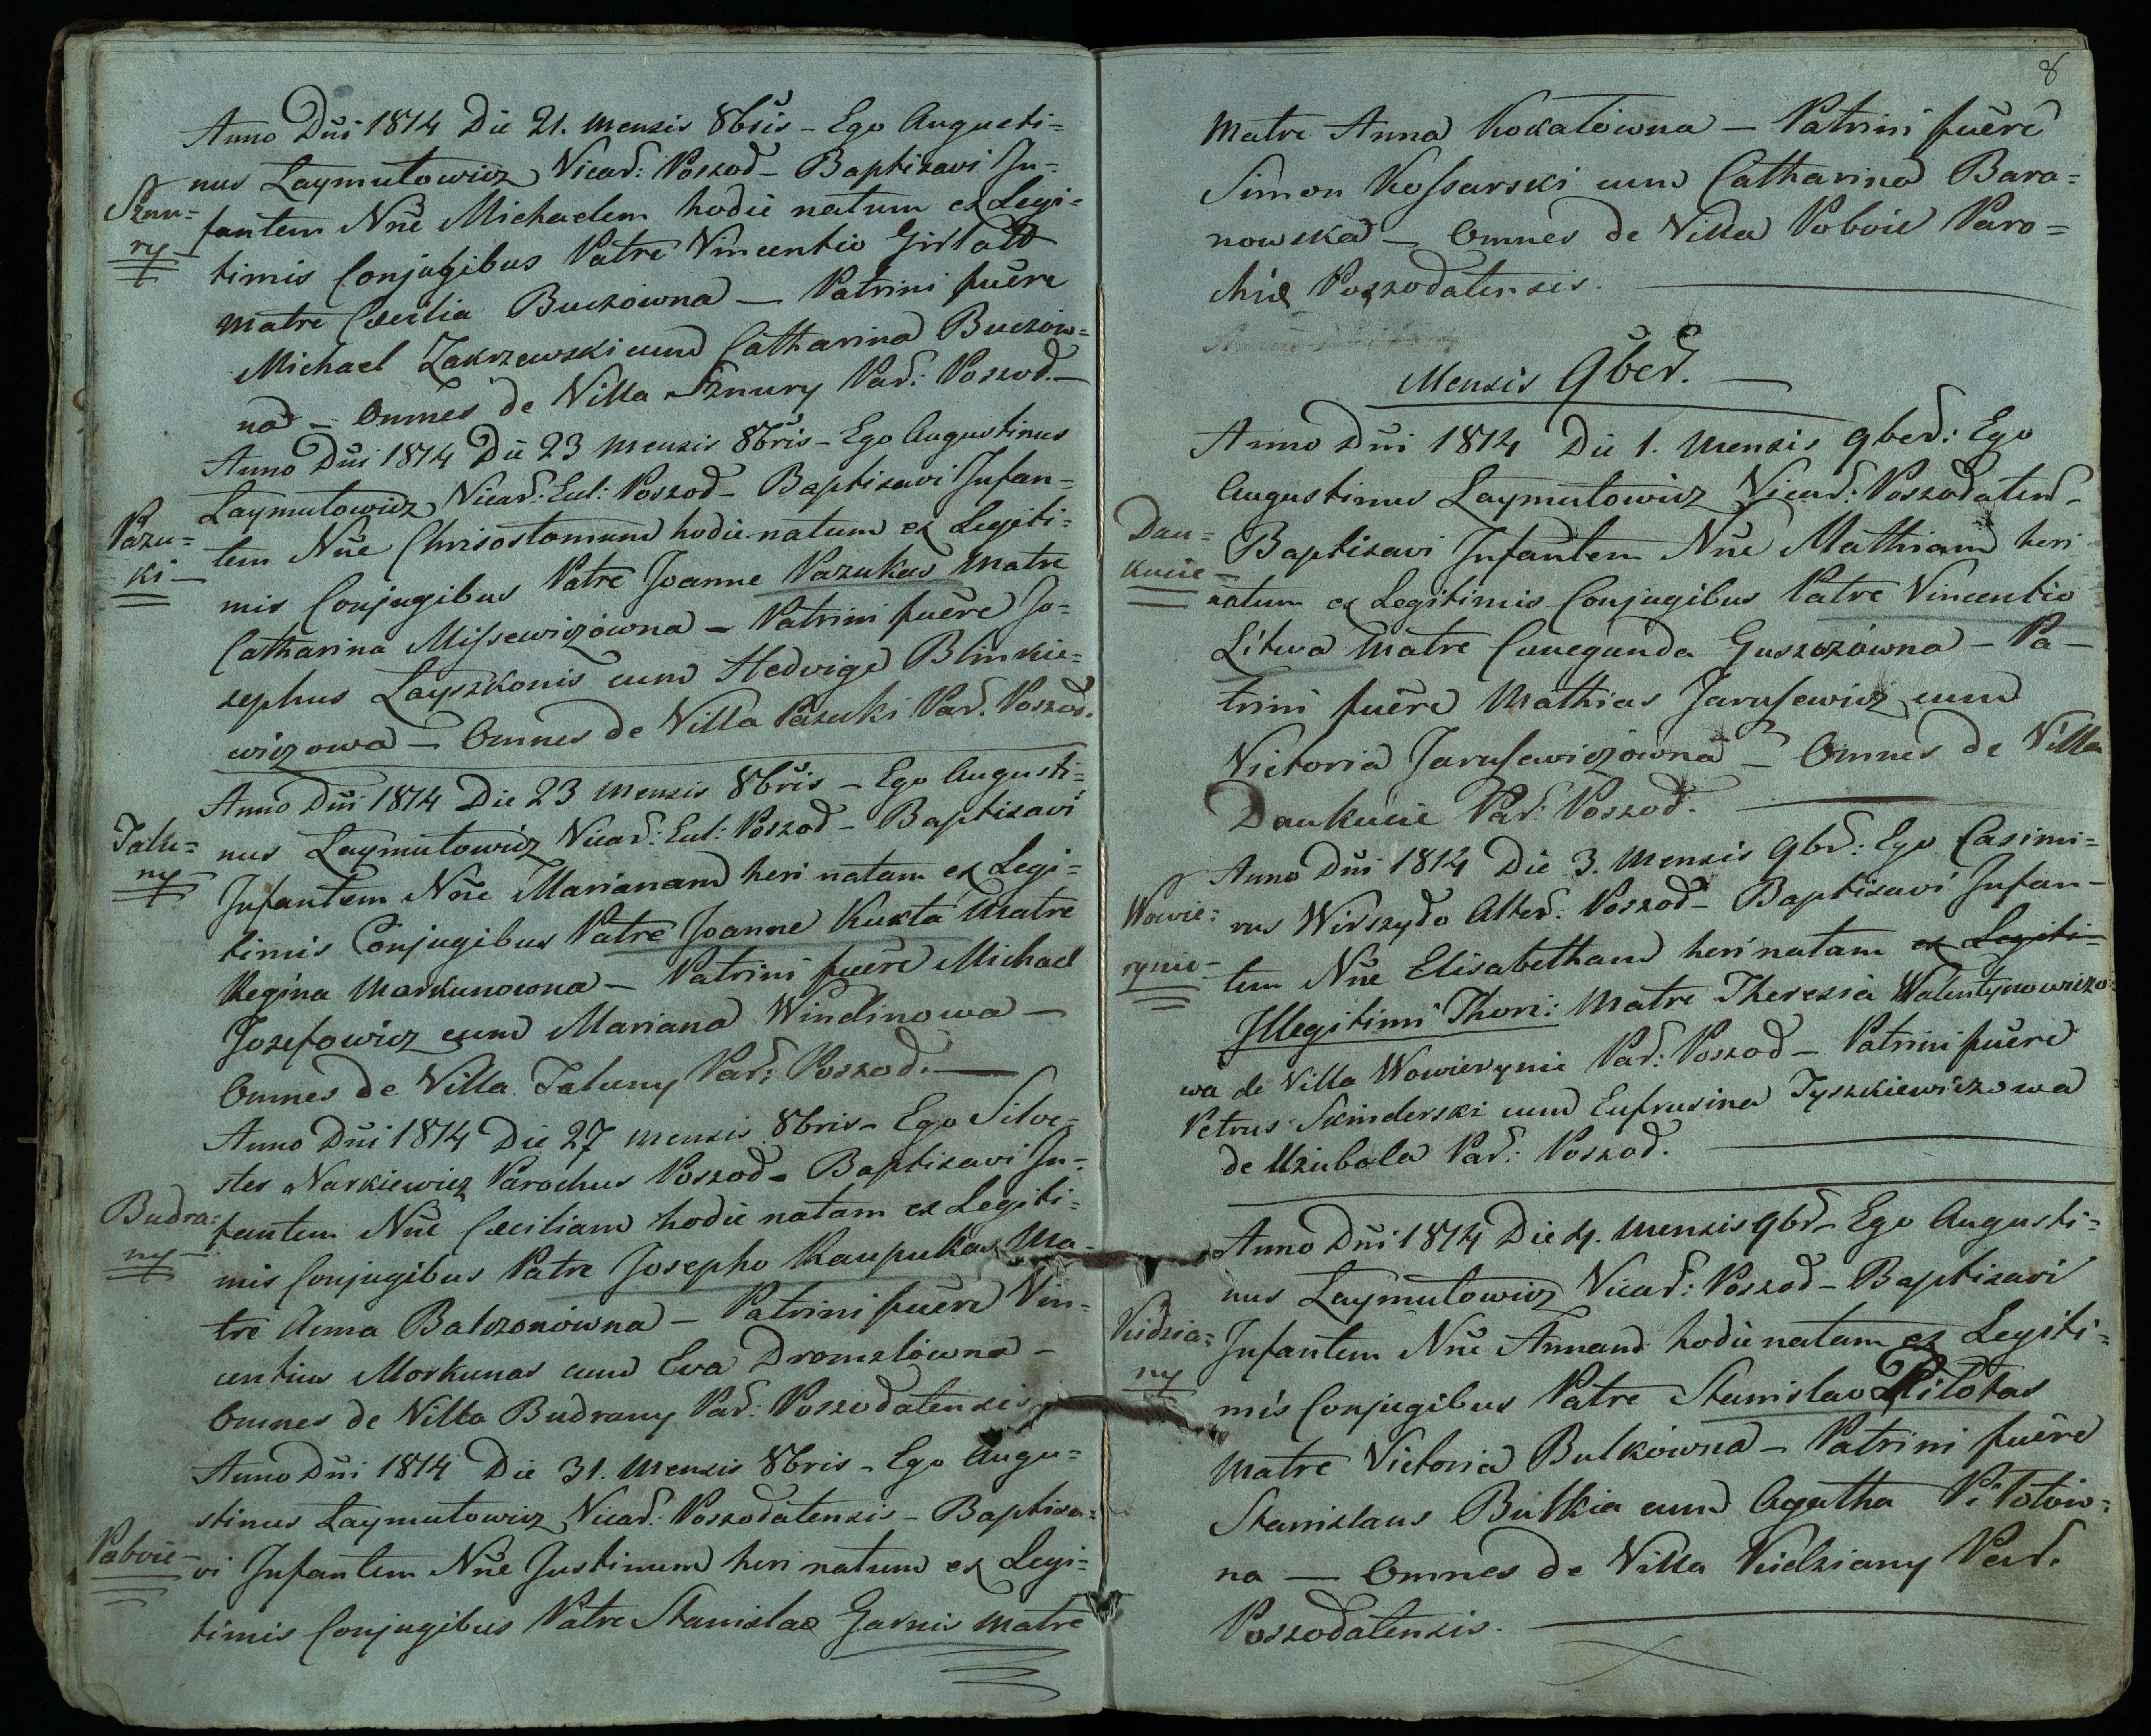 Anno Dñi 1814 Die 21. Mensis 8bris - Ego Augusti=
nus Laymutowicz Vicar: Poszod - Baptizavi In=
Sznu=
ry
fantem Nñe Michaelem hodie natum ex Legi=
timis Conjugibus Patre Vincentio Girtatt
Matre Cæcilia Buczowna — Patrini fuere
Michael Zakrzewski cum Catharina Buczow=
na — Omnes de Villa Sznury Par: Poszod. —
Anno Dñi 1814 Die 23 Mensis 8bris - Ego Augustinus
Laymutowicz Vicar: Eul: Poszod - Baptizavi Infan=
Pazu=
ki —
tem Nñe Chrisostomum hodie natum ex Legiti=
mis Conjugibus Patre Joanne Pazukas Matre
Catharina Missewiczowna — Patrini fuere Jo=
sephus Layszkonis cum Hedvige Blinkie=
wiczowa — Omnes de Villa Pazuki Par. Poszod.
Anno Dñi 1814 Die 23 Mensis 8bris — Ego Augusti=
Jalu=
ny
nus Laymutowicz Vicar: Eul: Poszod — Baptizavi
Infantem Nñe Marianam heri natam ex Legi=
timis Conjugibus Patre Joanne Kukta Matre
Regina Markunowna — Patrini fuere Michael
Jozefowicz cum Mariana Windinowa —
Omnes de Villa Jaluny Par: Poszod. —
Anno Dñi 1814 Die 27 Mensis 8bris - Ego Silve=
ster Narkiewicz Parochus Poszod - Baptizavi In=
Budra=
ny
fantem Nñe Cæciliam hodie natam ex Legiti=
mis Conjugibus Patre Josepho Kaupukas Ma-
tre Anna Balczonowna — Patrini fuere Vin=
centius Morkunas cum Eva Dromzlowna —
Omnes de Villa Budrany Par: Poszodatensis
Anno Dñi 1814 Die 31. Mensis 8bris - Ego Augu=
stinus Laymutowicz Vicar: Poszodatensis - Baptiza=
Poboie
vi Infantem Nñe Justinum heri natum ex Legi=
timis Conjugibus Patre Stanislao Garnis Matre
8
Matre Anna Kokatowna — Patrini fuere
Simon Kossarski cum Catharina Bara=
nowska — Omnes de Villa Poboie Paro=
chiæ Poszodatensis.
Mensis 9ber. —
Anno Dñi 1814 Die 1. Mensis 9ber: Ego
Augustinus Laymutowicz Vicar: Poszodaten -
Dau=
kucie
Baptizavi Infantem Nñe Mathiam heri
natum ex Legitimis Conjugibus Patre Vincentio
Litwa Matre Cunegunda Guszczowna — Pa—
trini fuere Mathias Jarusewicz cum
Victoria Jarusewiczowna — Omnes de Villa
Daukucie Par: Poszod.
Anno Dñi 1814 Die 3. Mensis 9br: Ego Casimi=
Wowie=
rynie
rus Wirszydo Alter: Poszod - Baptizavi Infan-
tem Nñe Elisabetham heri natam ex Legiti=
Illegitimi Thori: Matre Theresia Walentynowiczo=
wa de Villa Wowierynie Par: Poszod — Patrini fuere
Petrus Skinderski cum Eufrusina Tyszkiewiczowa
de Uziubala Par: Poszod.
Anno Dñi 1814 Die 4. Mensis 9br - Ego Augusti=
nus Laymutowicz Vicar: Poszod - Baptizavi
Kudzia=
ny
Infantem Nñe Annam hodie natam ex Legiti=
mis Conjugibus Patre Stanislao Pilotas
Matre Victoria Bulkowna — Patrini fuere
Stanislaus Bulkia cum Agatha Pilotow=
na — Omnes de Villa Kudziany Par.
Poszodatensis.